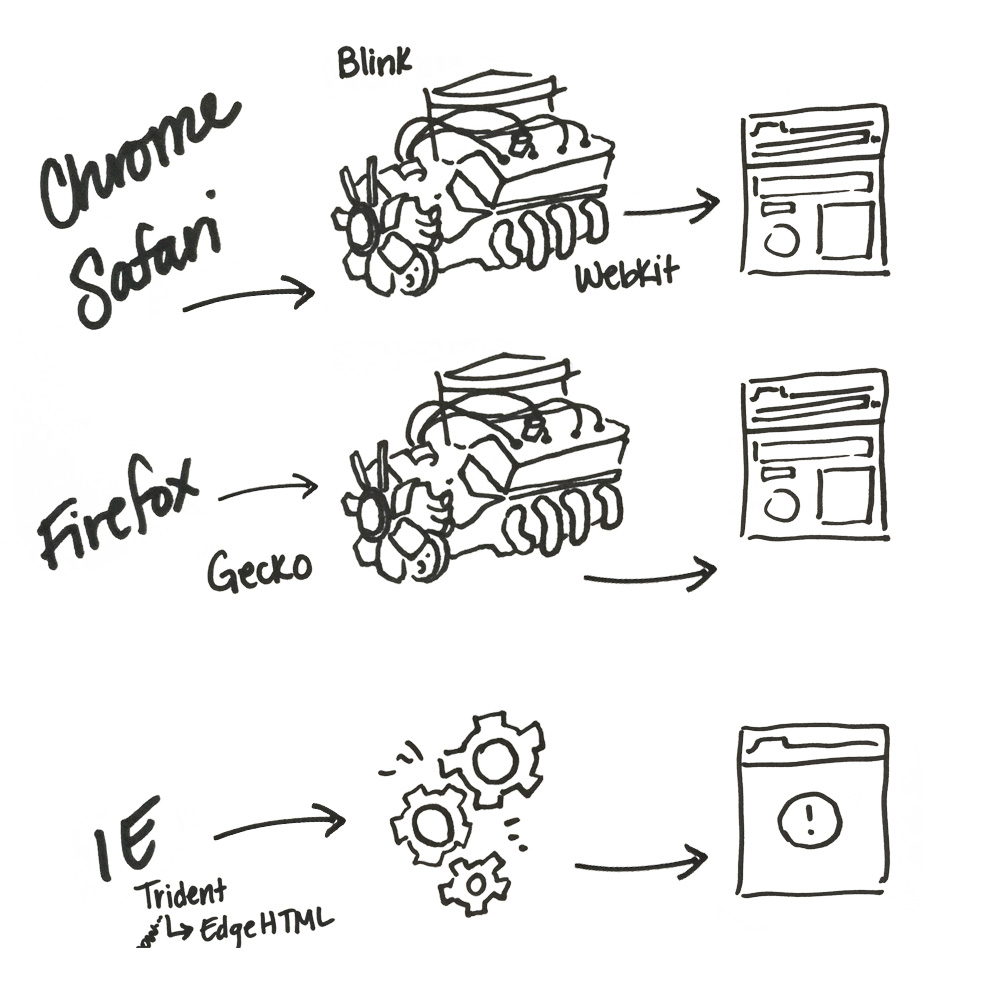 Blink
Chrome
Safari
WebKit
Firefox
Gecko
!
IE
Trident
EdgeHTML